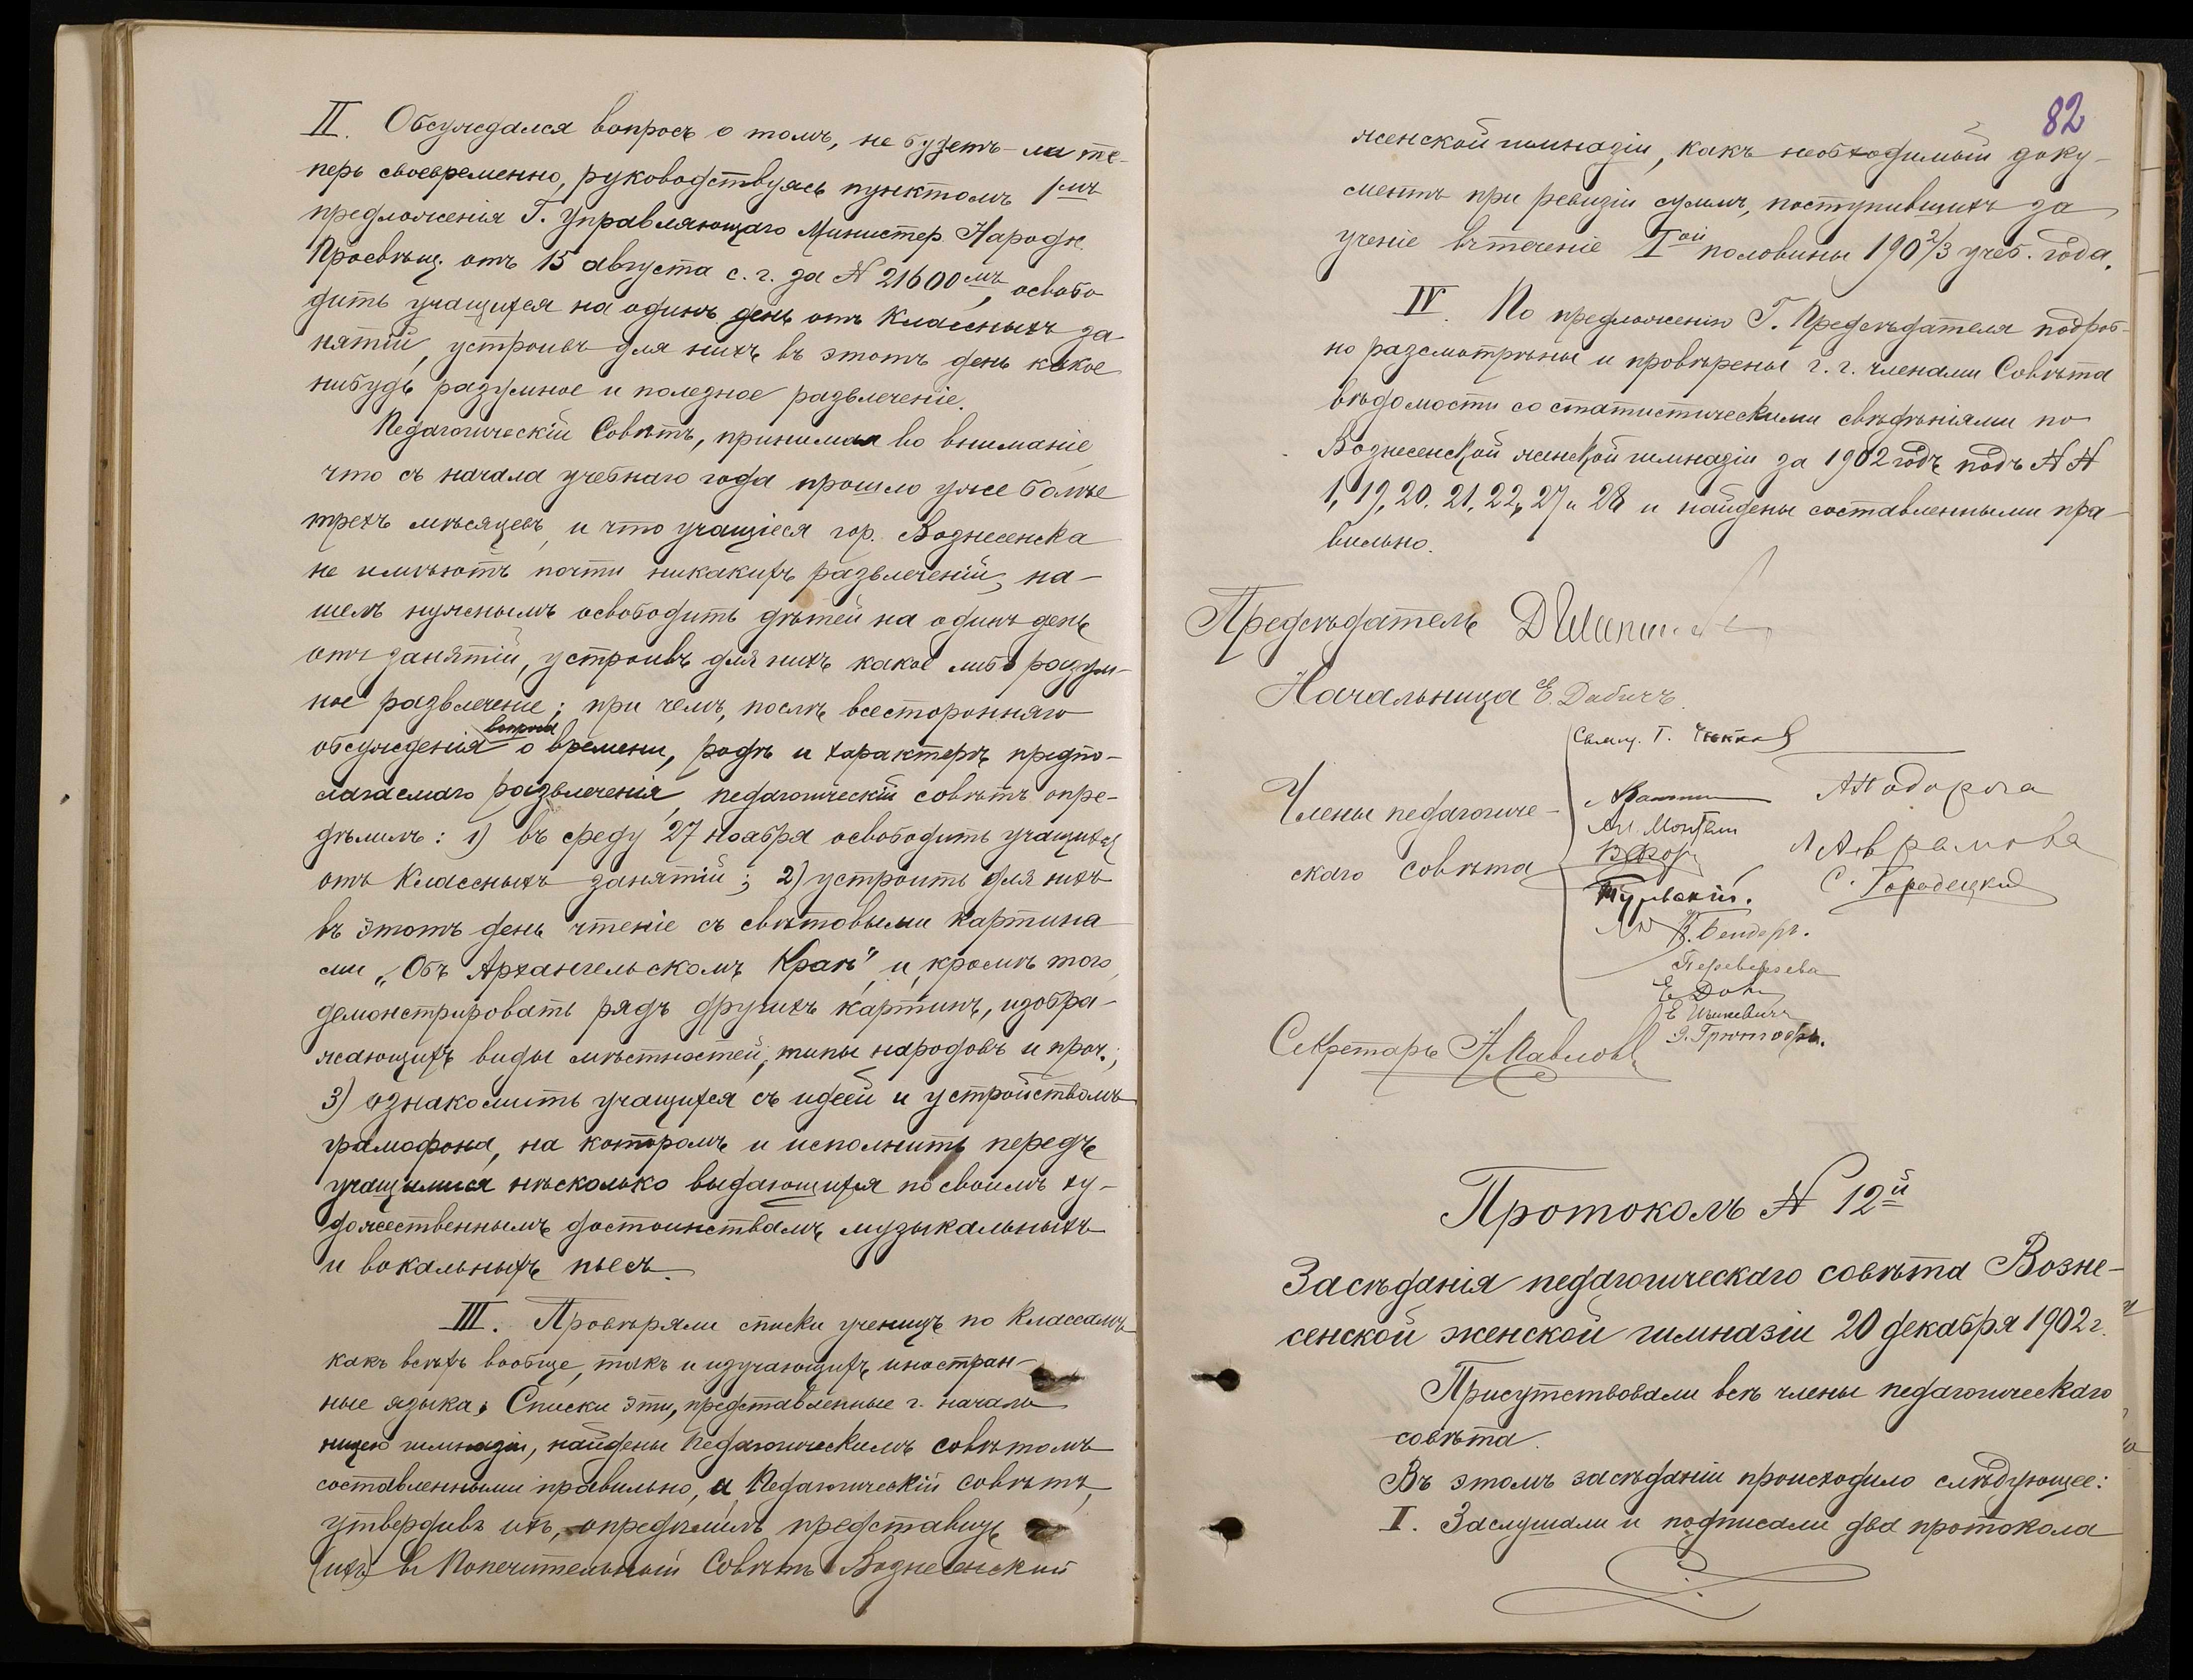 II. Обсуждался вопросъ о томъ, не будетъ-ли те-
перь своевременно, руководствуясь пунктомъ 1мъ
предложенія Г. Управляющаго Министер. Народн.
Просвѣщ. отъ 15 августа с. г. за № 21600мъ, освобо
дить учащихся на одинъ день отъ классныхъ за
нятій, устроивъ для нихъ въ этотъ день какое
нибудь разумное и полезное развлеченіе.
Педагогическій Совѣтъ, принимая во вниманіе
что съ начала учебнаго года прошло уже болѣе
трехъ мѣсяцевъ, и что учащіеся гор. Вознесенска
не имѣютъ почти никакихъ развлеченій, на-
шелъ нужнымъ освободить дѣтей на одинъ день
отъ занятій, устроивъ для нихъ какое либо разум-
ное развлеченіе; при чемъ, послѣ всесторонняго
обсужденія вопроса о времени, родѣ и характерѣ предпо-
лагаемаго развлеченія, педагогическій совѣтъ опре-
дѣлилъ: 1) въ среду 27 ноября освободить учащихся
отъ классныхъ занятій; 2) устроить для нихъ
въ этотъ день чтеніе съ свѣтовыми картина
ми „Объ Архангельскомъ Краѣ" и, кромѣ того,
демонстрировать рядъ другихъ картинъ, изобра-
жающихъ виды мѣстностей, типы народовъ и проч.;
3) ознакомить учащихся съ идеей и устройствомъ
грамофона, на которомъ и исполнить передъ
учащимися нѣсколько выдающихся по своимъ ху-
дожественнымъ достоинствамъ музыкальныхъ
и вокальныхъ пьесъ.
III. Провѣряли списки ученицъ по классамъ
какъ всѣхъ вообще, такъ и изучающихъ иностран-
ные языка. Списки эти, представленные г. началь
ницею гимназіи, найдены Педагогическимъ совѣтомъ
составленными правильно, а Педагогическій совѣтъ,
утвердивъ ихъ, опредѣлилъ представить
(ихъ) въ Попечительный Совѣтъ Вознесенской
82
женской гимназіи, какъ необходимый доку-
ментъ при ревизіи суммъ, поступившихъ за
ученіе втеченіе Iой половины 1902/3 учеб. года.
IV. По предложенію Г. Предсѣдателя подроб-
но разсмотрѣны и провѣрены г. г. членами Совѣта
вѣдомости со статистическими свѣдѣніями по
Вознесенской женской гимназіи за 1902 годъ подъ №№
1, 19, 20. 21, 22, 27 и 28 и найдены составленными пра-
вильно.
Предсѣдатель
Начальница Е. Дабичъ.
Свящ. Г.
Члены педагогиче-
скаго совѣта
А Подорога
Л Аврамова
С. Городецкій
В. Бендеръ.
Переверзева
Секретарь Н. Павловъ
Протоколъ № 12й
Засѣданія педагогическаго совѣта Возне-
сенской женской гимназіи 20 декабря 1902 г.
Присутствовали всѣ члены педагогическаго
совѣта.
Въ этомъ засѣданіи происходило слѣдующее:
I. Заслушали и подписали два протокола